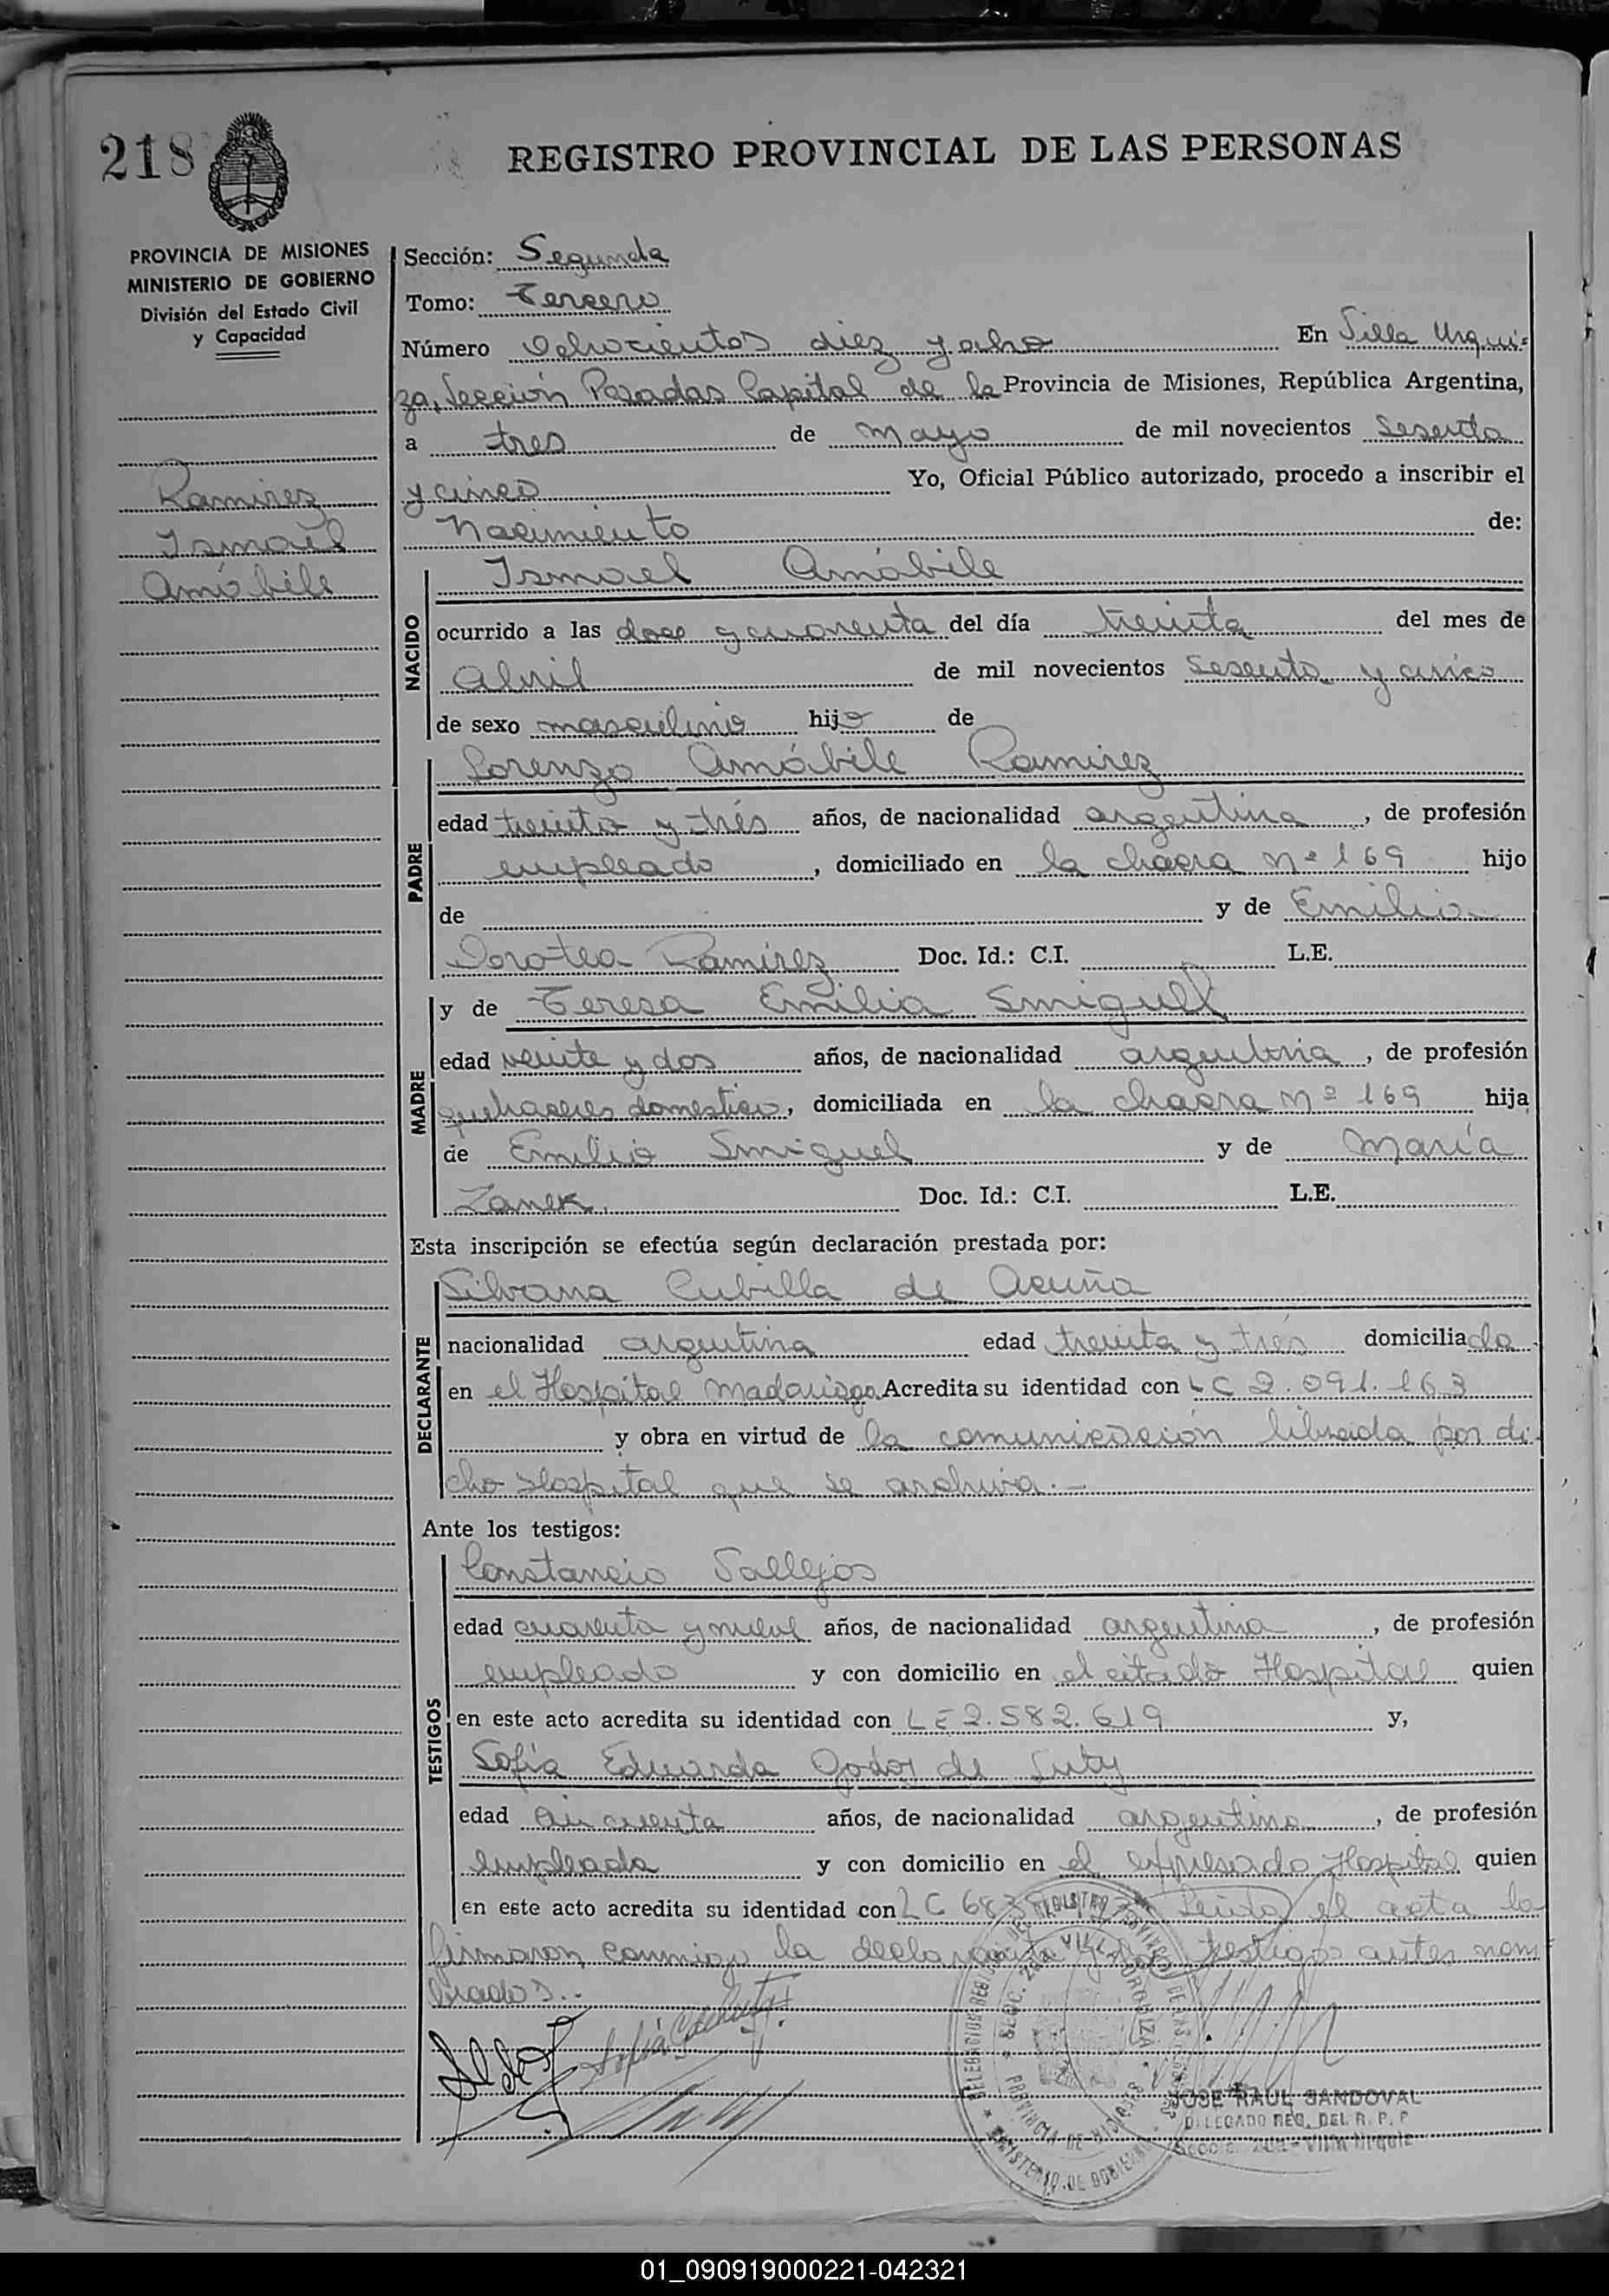 218
REGISTRO PROVINCIAL DE LAS PERSONAS
PROVINCIA DE MISIONES
MINISTERIO DE GOBIERNO
División del Estado Civil
y Capacidad
Ramirez
Ismael
Amábile
Sección: Segunda
Tomo: Tercero
Número Ochocientos diez y ocho En Villa Urqui-
za, Sección Posadas Capital de la Provincia de Misiones, República Argentina,
a tres de mayo de mil novecientos sesenta
y cinco Yo, Oficial Público autorizado, procedo a inscribir el
nacimiento de:
NACIDO
Ismael Amábile
ocurrido a las doce y cuarenta del día treinta del mes de
abril de mil novecientos sesenta y cinco
de sexo masculino hijo de
PADRE
Lorenzo Amábile Ramirez
edad treinta y trés años, de nacionalidad argentina, de profesión
empleado, domiciliado en la chacra nº 169 hijo
de y de Emilia
Dorotea Ramirez Doc. Id.: C.I. L.E.
MADRE
y de Teresa Emilia Smiguel
edad veinte y dos años, de nacionalidad argentina, de profesión
quehaceres domestico, domiciliada en la chacra nº 169 hija
de Emilio Smiguel y de María
Zanek. Doc. Id.: C.I. L.E.
Esta inscripción se efectúa según declaración prestada por:
DECLARANTE
Silvana Cubilla de Acuña
nacionalidad argentina edad treinta y trés domiciliada
en el Hospital Madariaga. Acredita su identidad con LC 2.091.163
y obra en virtud de la comunicación librada por di-
cho Hospital que se archiva.-
Ante los testigos:
TESTIGOS
Constancio Vallejos
edad cuarenta y nueve años, de nacionalidad argentina, de profesión
empleado y con domicilio en el citado Hospital quien
en este acto acredita su identidad con LE 2.582.619 y,
Sofía Eduarda Godoy de
edad cincuenta años, de nacionalidad argentina, de profesión
empleada y con domicilio en el expresado Hospital quien
en este acto acredita su identidad con LC Leida el acta la
firmaron conmigo la declarante y los testigos antes nom
brados..
JOSE RAUL SANDOVAL
DELEGADO REG. DEL R. P. P
Secc. 2da - Villa Urquiza
01_090919000221-042321